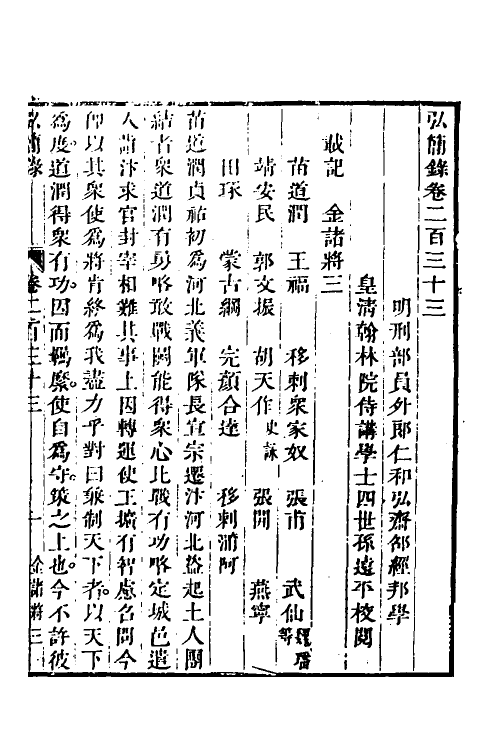 弘簡錄卷二百三十三
明刑部員外郎仁和弘齋邵經邦學
皇清翰林院侍講學士四世孫遠平校閱
載記　金諸將三
苗道潤　王福　移剌衆家奴　張甫　武仙
靖安民　郭文振　胡天作史詠　張開　燕寧
田琢　蒙古綱　完顏合達　移剌蒲阿
苗道潤貞祐初爲河北義軍隊長宣宗遷汴河北盜起土人團
結者衆道潤有勇略敢戰鬭能得衆心比戰有功略定城邑遣
人詣汴求官封宰相難其事上因轉運使王擴有智慮召問今
即以其衆使爲將肯終爲我盡力乎對曰兼制天下者以天下
爲度道潤得衆有功因而羈縻使自爲守策之上也今不許彼
弘簡錄　卷二百三十三　一　金諸將三